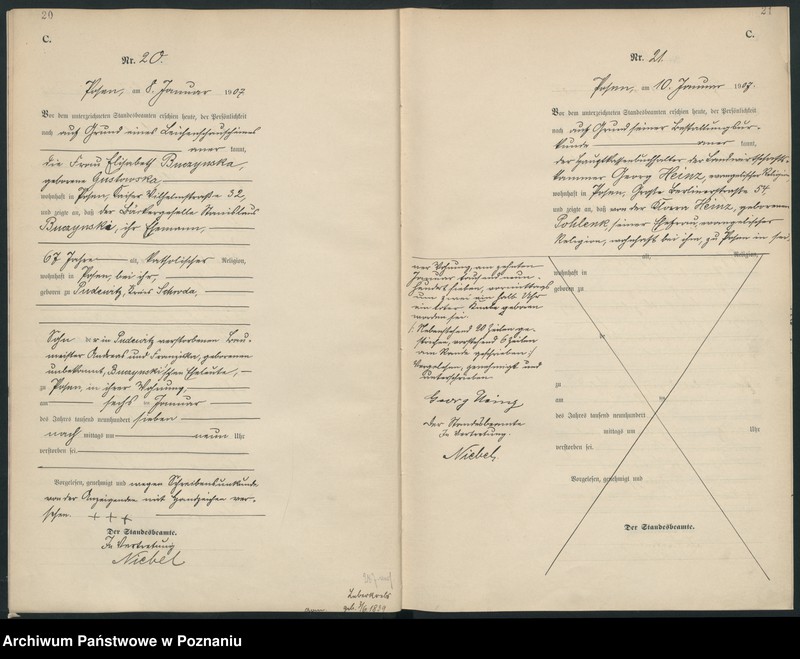 20
C.
Nr. 20.
Posen, am 8. Januar 1907
Vor dem unterzeichneten Standesbeamten erschien heute, der Persönlichkeit
nach auf Grund eines Leichenschauscheines
aner kannt,
die Frau Elisabeth Buczynska,
geborene Gustowska
wohnhaft in Posen, Kaiser Wilhelmstraße 32,
und zeigte an, daß der Bäckergeselle Stanislaus
Buczynski, ihr Ehemann,
67 Jahre alt, katholischer Religion,
wohnhaft in Posen, bei ihr,
geboren zu Pudewitz, Kreis Schroda,
Sohn der in Pudewitz verstorbenen Bau-
meister Andreas und Franziska, geborenen
unbekannt, Buczynski'schen Eheleute,
zu Posen, in ihrer Wohnung,
am sechs ten Januar
des Jahres tausend neunhundert sieben
nach mittags um neun Uhr
verstorben sei.
Vorgelesen, genehmigt und wegen Schreibensunkunde
von der Anzeigenden mit Handzeichen ver-
sehen. + + +
Der Standesbeamte.
In Vertretung
Niebel
geb. 1839
21
C.
Nr. 21.
Posen, am 10. Januar 1907.
Vor dem unterzeichneten Standesbeamten erschien heute, der Persönlichkeit
nach auf Grund seiner Bestallungsur-
kunde aner kannt,
der Hauptkassenbuchhalter der Landwirtschafts-
kammer Georg Heinz, evangelischer Religion,
wohnhaft in Posen, Große Berlinerstraße 54
und zeigte an, daß von der Klara Heinz, geborenen
Pohlenk, seiner Ehefrau, evangelischer
Religion, wohnhaft bei ihm, zu Posen in sei-
ner Wohnung, am zehnten
Januar tausend neun-
hundert sieben, vormittags
um zwei ein halb Uhr
ein totes Knabe geboren
worden sei
/: Nebenstehend 20 Zeilen ge-
strichen, vorstehend 6 Zeilen
am Rande geschrieben :/
Vorgelesen, genehmigt und
unterschrieben
Georg Heinz
Der Standesbeamte
In Vertretung.
Niebel.
alt, Religion,
wohnhaft in
geboren zu
zu
am ten
des Jahres tausend neunhundert
mittags um Uhr
verstorben sei.
Vorgelesen, genehmigt und
Der Standesbeamte.
Archiwum Państwowe w Poznaniu